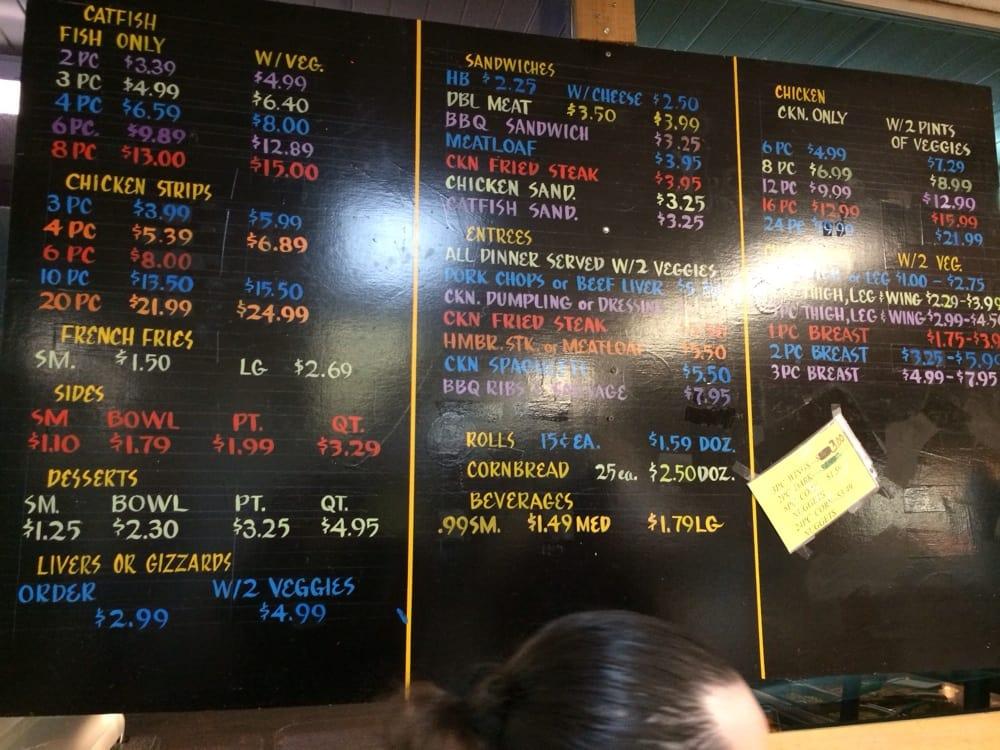 CATFISH
FISH ONLY W/VEG.
2 PC $3.39 $4.99
3 PC $4.99 $6.40
4 PC $6.59 $8.00
6 PC. $9.89 $12.89
8 PC $13.00 $15.00
CHICKEN STRIPS
3 PC $3.99 $5.99
4 PC $5.39 $6.89
6 PC $8.00
10 PC $13.50 $15.50
20 PC $21.99 $24.99
FRENCH FRIES
SM. $1.50 LG $2.69
SIDES
SM BOWL PT. QT.
$1.10 $1.79 $1.99 $3.29
DESSERTS
SM. BOWL PT. QT.
$1.25 $2.30 $3.25 $4.95
LIVERS OR GIZZARDS
ORDER W/2 VEGGIES
$2.99 $4.99
SANDWICHES
HB $2.25 W/CHEESE $2.50
DBL MEAT $3.50 $3.99
BBQ SANDWICH $3.25
MEATLOAF $3.95
CKN FRIED STEAK $3.95
CHICKEN SAND. $3.25
CATFISH SAND. $3.25
ENTREES
ALL DINNER SERVED W/2 VEGGIES
PORK CHOPS or BEEF LIVER
CKN. DUMPLING or DRESSING
CKN FRIED STEAK
HMBR. STK. or MEATLOAF $5.50
CKN SPAGHETTI $5.50
BBQ RIBS $7.95
ROLLS 15¢ EA. $1.59 DOZ.
CORNBREAD 25ea. $2.50 DOZ.
BEVERAGES
.99 SM. $1.49 MED $1.79 LG
CHICKEN
CKN. ONLY W/2 PINTS
OF VEGGIES
6 PC $4.99 $7.29
8 PC $6.99 $8.99
12 PC $9.99 $12.99
16 PC $12.99 $15.99
24 PC $21.99
W/2 VEG.
or LEG $1.00 - $2.75
THIGH, LEG & WING $2.29-$3.99
THIGH, LEG & WING $2.99-$4.50
1 PC BREAST $1.75-$3.9
2 PC BREAST $3.25-$5.9
3 PC BREAST $4.99-$7.95
1PC WINGS
2PC DARK
NUGGETS
24PC CORN
NUGGETS